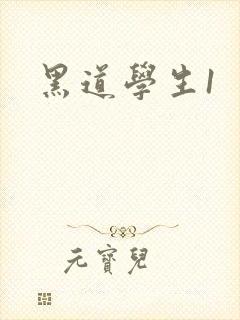 黑道學生1
元寶兒